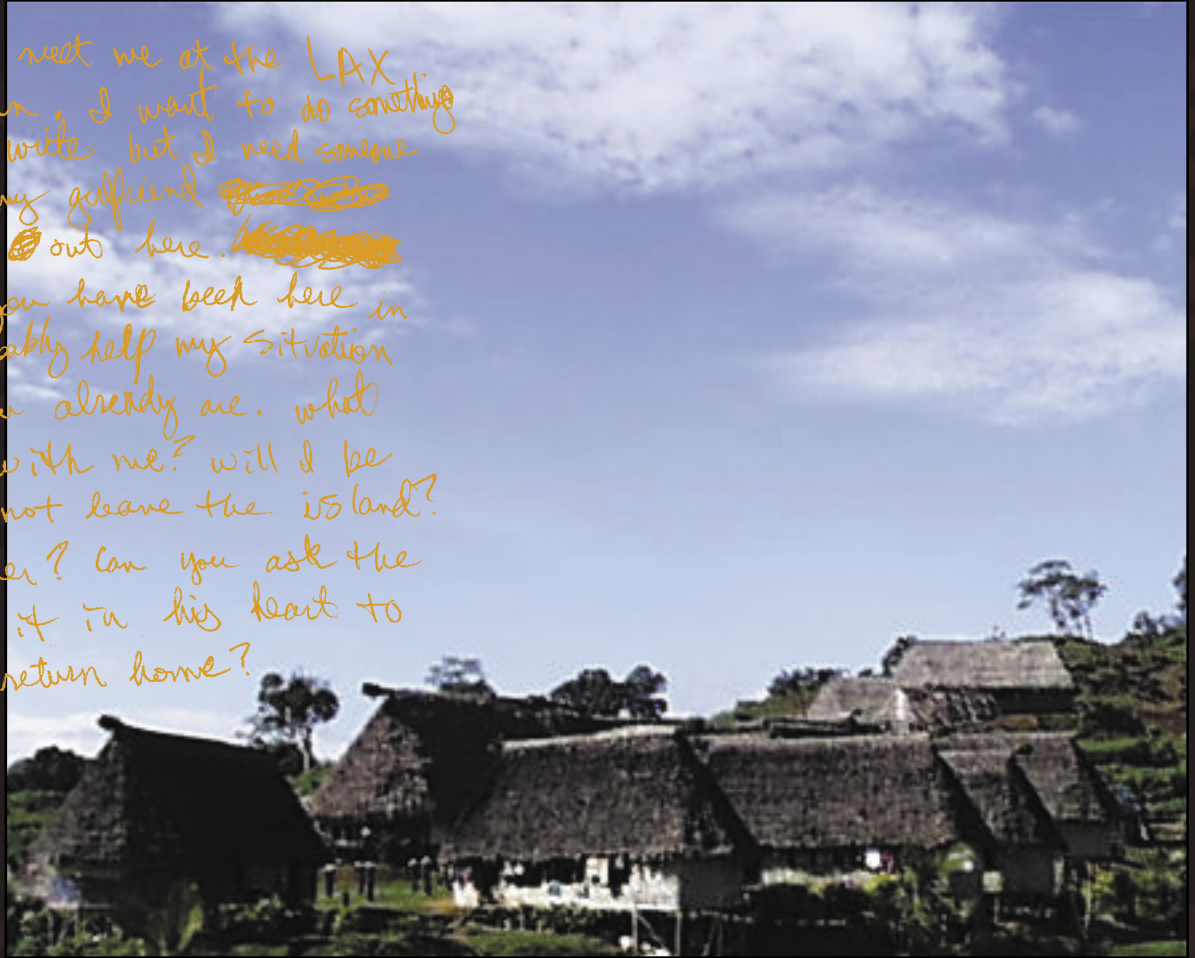 meet me at the LAX
n. I want to do something
write but I need someone
my girlfriend
out here.
you have been here in
ably help my situation
already are. what
with me? will I be
not leave the island?
er? Can you ask the
it in his heart to
return home?